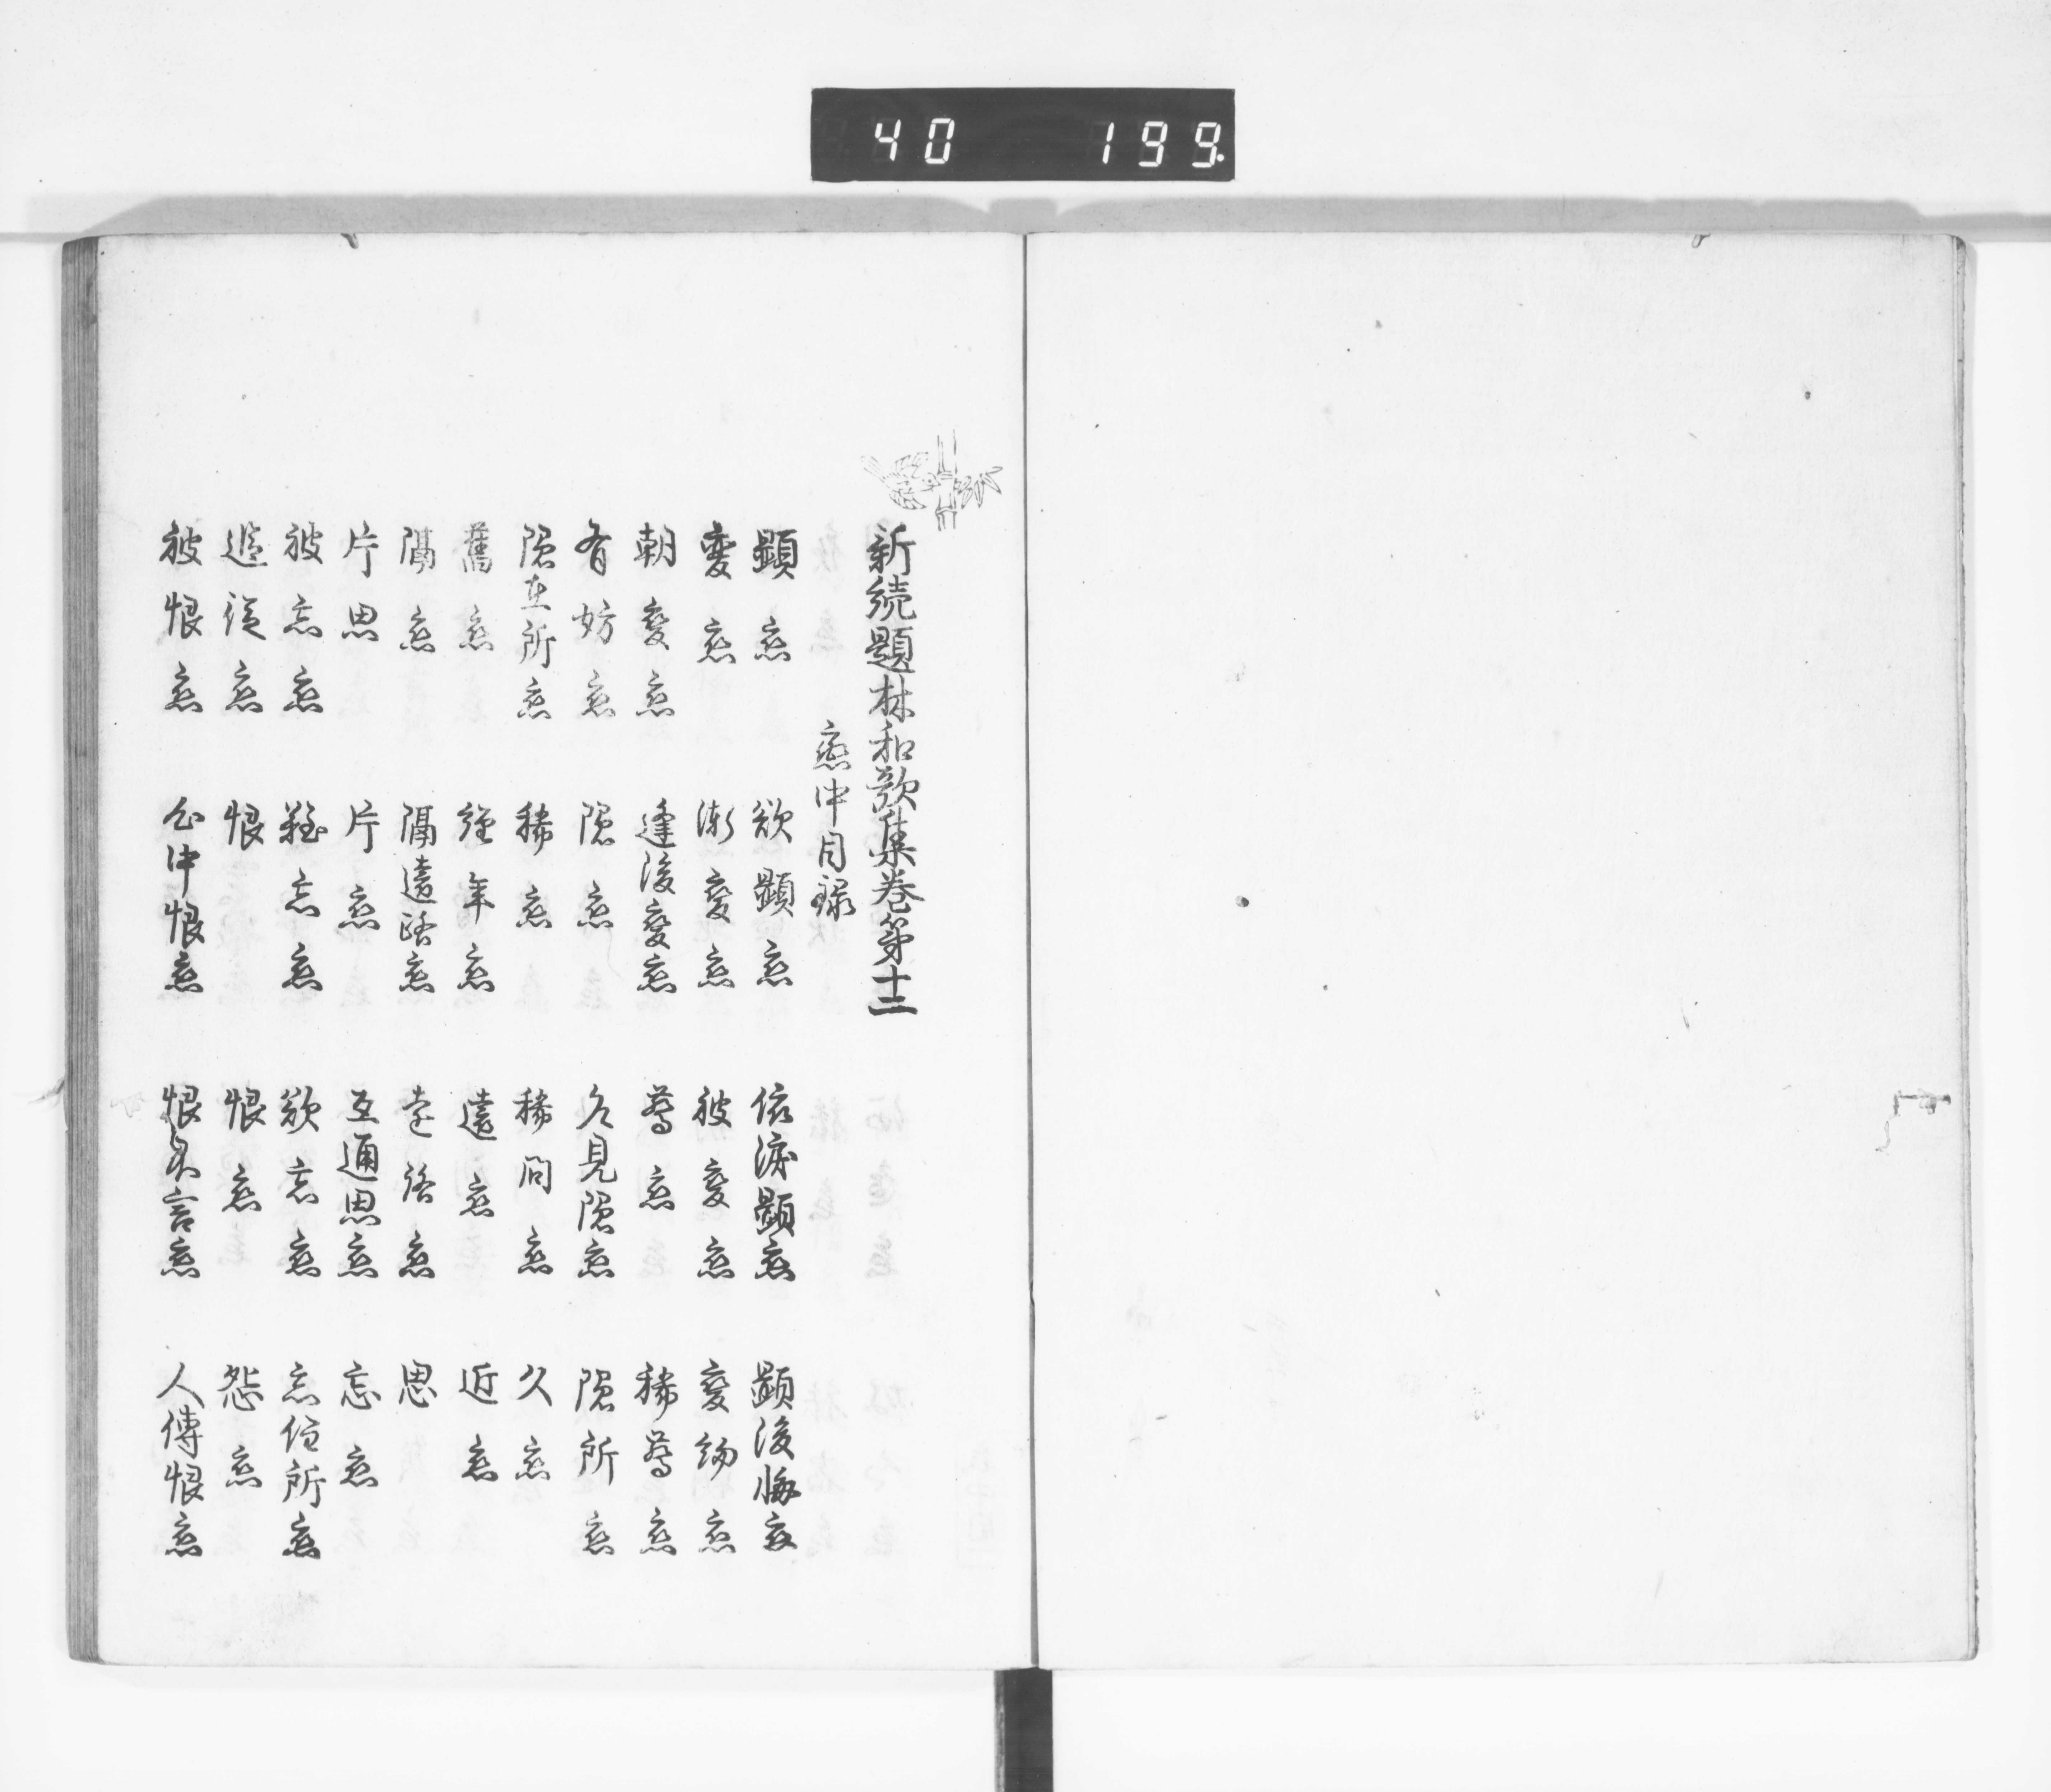 40 199.
新続題林和歌集巻第十二
恋中目録
顕恋 欲顕恋 依涙顕恋 顕後悔恋
変恋 漸変恋 被変恋 変約恋
朝変恋 逢後変恋 驚恋 稀驚恋
有妨恋 隠恋 久見隠恋 隠所恋
隠在所恋 稀恋 稀問恋 久恋
舊恋 経年恋 遠恋 近恋
隔恋 隔遠路恋 恋 思
片思 片恋 互通思恋 忘恋
被忘恋 難忘恋 欲忘恋 忘住所恋
追従恋 恨 恨恋 怨恋
被恨恋 心中恨恋 恨不言恋 人傳恨恋